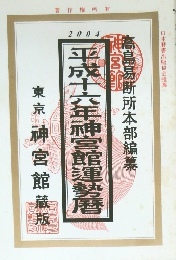 2004
高島易断所本部編纂
平成十六年神宮館運勢暦
東京 神宮館 蔵版